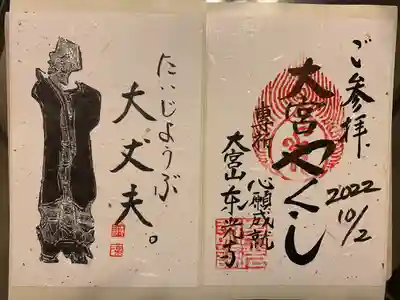 ご参拝
2022
10/2
大宮やくし
専祈
心願成就
大宮山東光寺
だいじょうぶ
大丈夫。